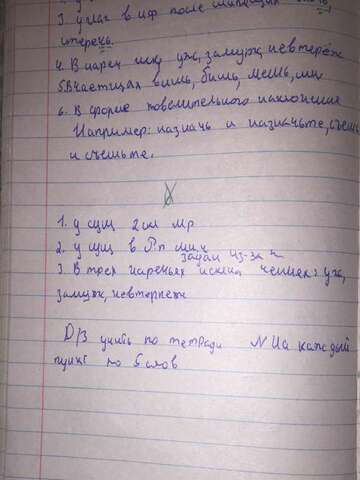 3. у глаг в нф после шипящих
стеречь.
4. В нареч искл уж, замуж, невтерёж
5 Вчастицах вишь, бишь, лишь, ишь
6. В форме повелительного наклонения
Например: назначь и назначьте, съешь
и съешьте.
Ь
1. у сущ 2 скл мр
2. у сущ в Рп мн.ч
задач из-за ч
3. В трех наречьях исключениях: уж,
замуж, невтерпеж
D/З учить по тетради На каждый
пункт по 5 слов